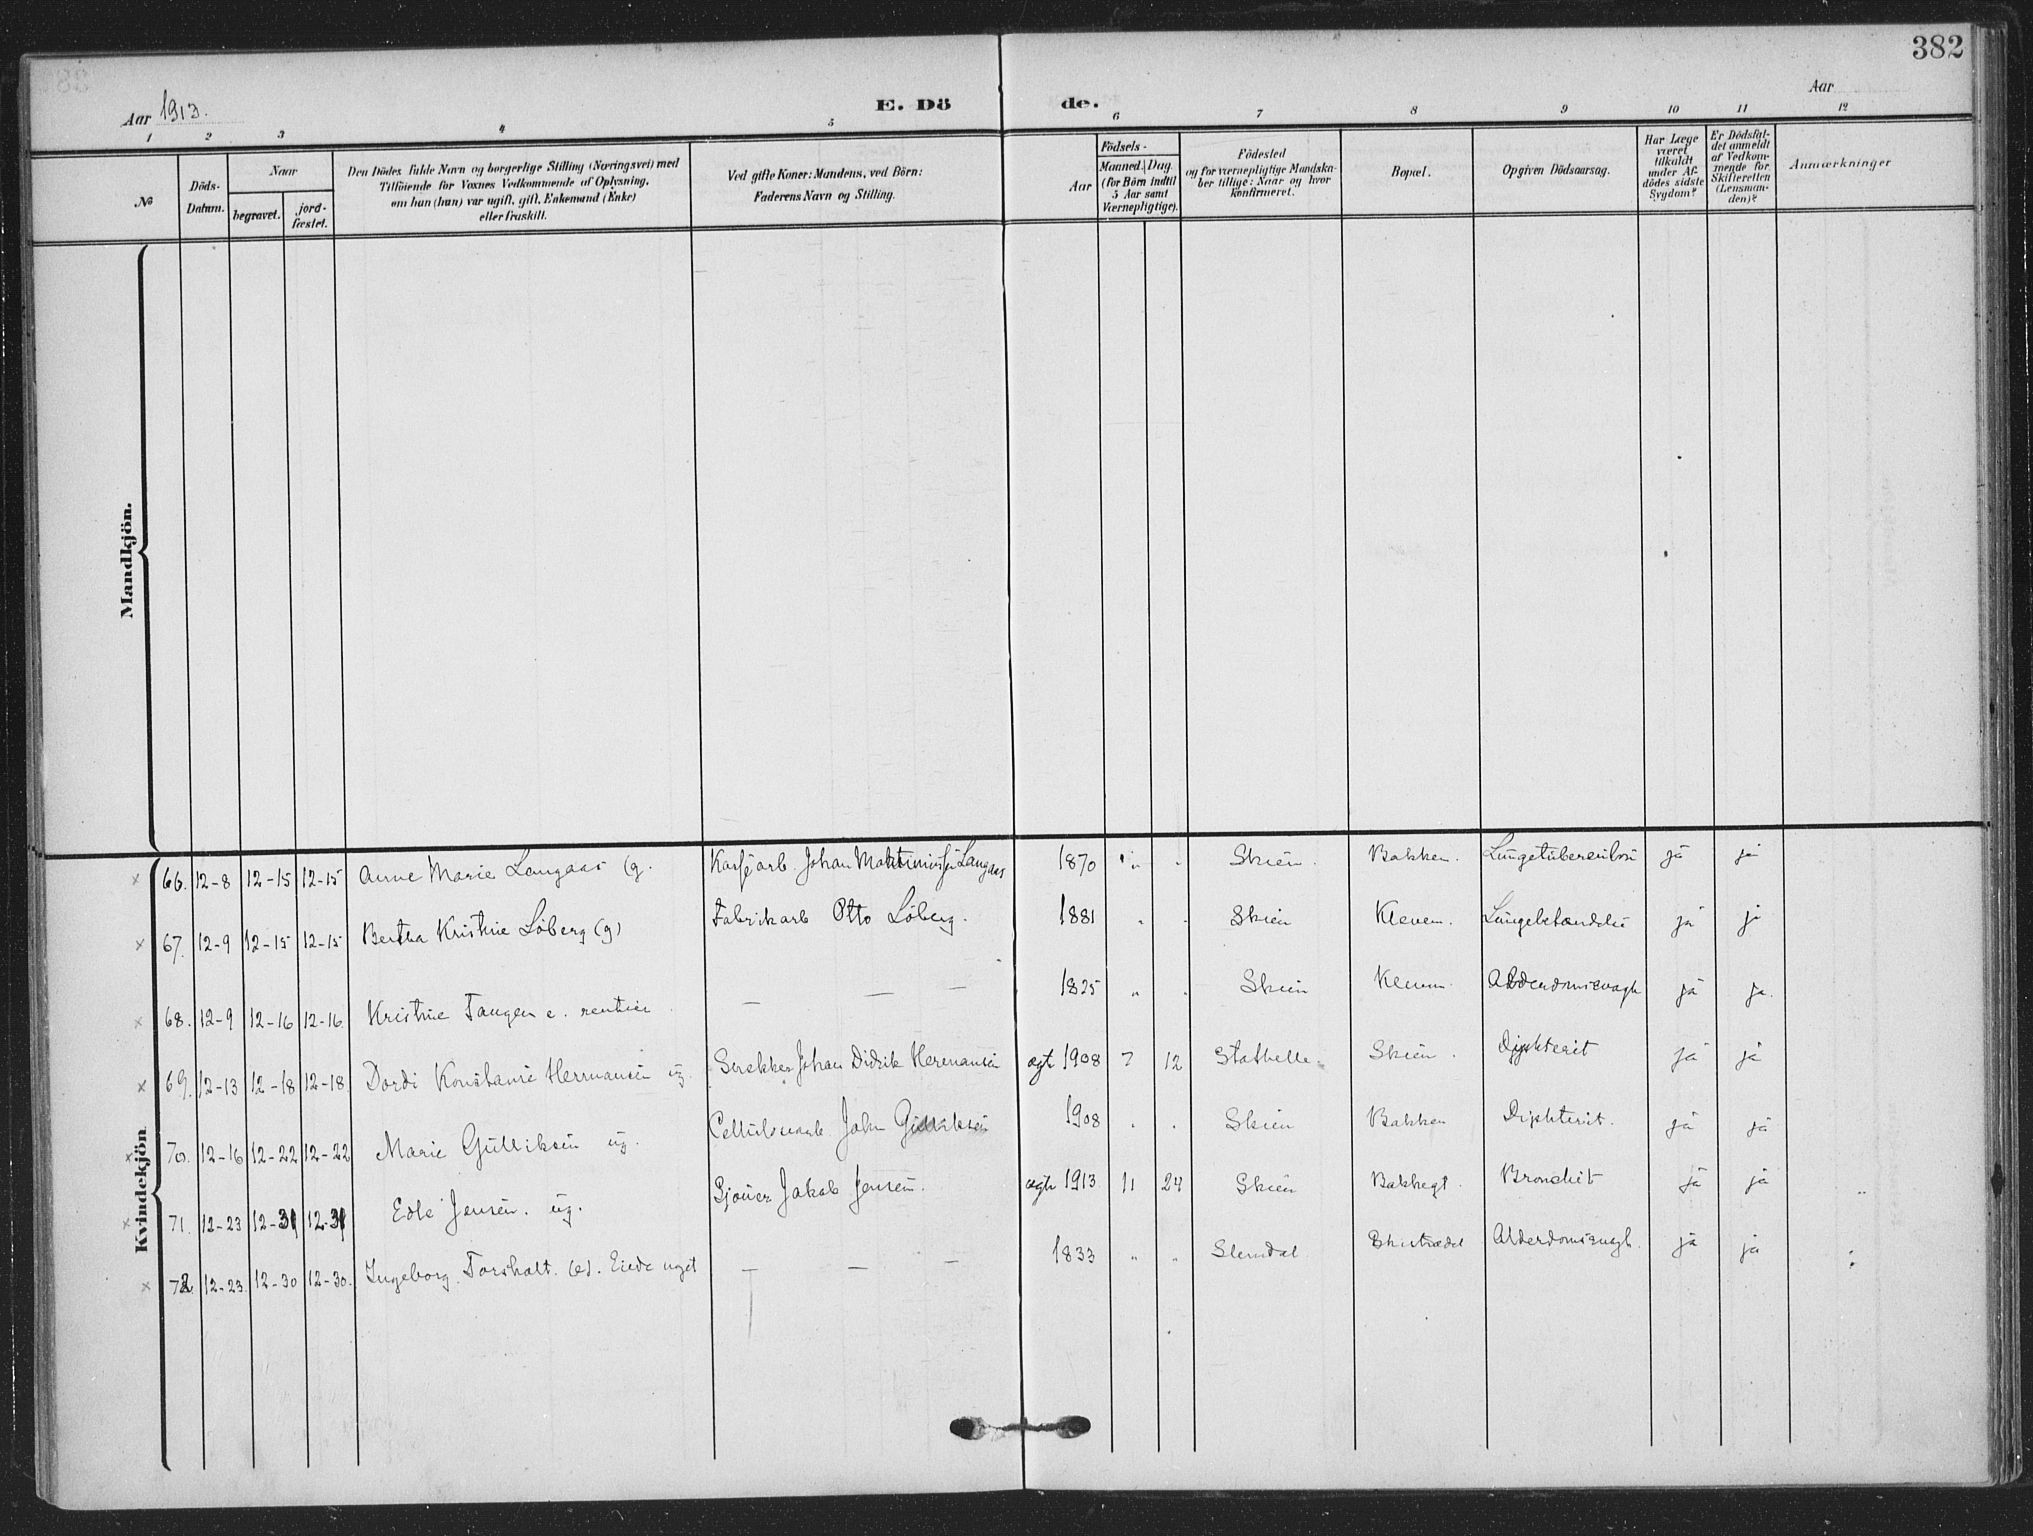 382
Aar 1913.
E. Dö de.
Aar
1 2 3 4 5 6 7 8 9 10 11 12
№
Döds-Datum.
Naar
begravet.
jord-fæstet.
Den Dödes fulde Navn og borgerlige Stilling (Næringsvei) med
Tilföiende for Voxnes Vedkommende af Oplysning,
om han (hun) var ugift, gift, Enkemand (Enke)
eller fraskilt.
Ved gifte Koner: Mandens, ved Börn:
Faderens Navn og Stilling.
Födsels-
Aar
Maaned. Dag.
(for Börn indtil
5 Aar samt
Værnepligtige).
Födested
og for værnepligtige Mandska-
ber tillige: Naar og hvor
konfirmeret.
Bopæl.
Opgiven Dödsaarsag.
Har Læge
været
tilkaldt
under Af-
dödes sidste
Sygdom?
Er Dödsfal-
det anmeldt
af Vedkom-
mende for
Skifteretten
(Lensman-
den)?
Anmærkninger
Mandkjön.
Kvindekjön
66. 12-8 12-15 12-15 Anne Marie Langaas (g. Johan Langaas 1870 " " Skien. Bakken. Lungetuberculose ja ja
67. 12-9 12-15 12-15 Bertha Kristine Löberg (g) Fabrikarb Otto Löberg. 1881 " " Skien Kleven. Lungebetændelse ja ja
68. 12-9 12-16 12-16 Kristine Tangen e. rentier — — — 1825 " " Skien Kleven. Alderdomssvagh ja ja.
69. 12-13 12-18 12-18 Dordi Konstanse Hermansen ug. Snekker Johan Didrik Hermansen ægt 1908 7 12 Stathelle. Skien. Diphterit ja ja
70. 12-16 12-22 12-22 Marie Gulliksen ug. Cellulosearb. John Gulliksen 1908 " " Skien Bakken Diphterit. ja ja
71. 12-23 12-31 12-31 Edle Jensen. ug. Sjouer Jakob Jensen. ægte 1913 11 24 Skien Bakkegt. Bronchit ja ja "
72. 12-23. 12-30 12-30. Ingeborg Forsholt. (e). — — — 1833 " " Slemdal Alderdomssvagh. ja ja